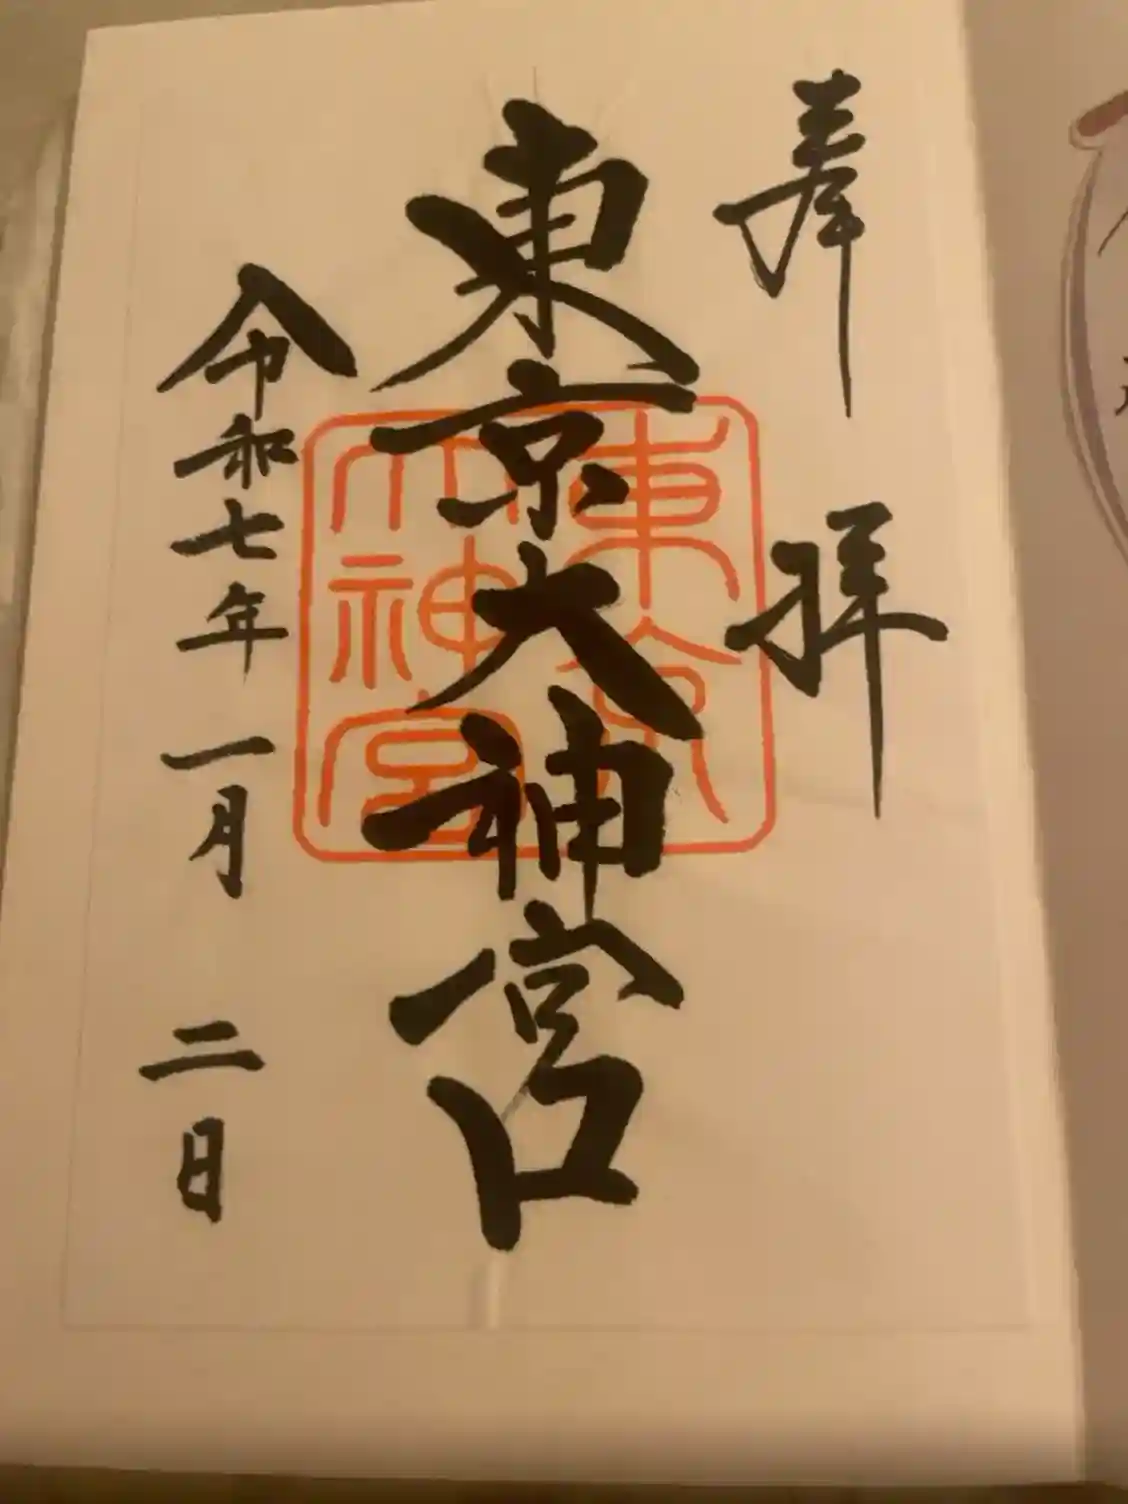 奉拝
東京大神宮
令和七年一月二日
東京
大神宮